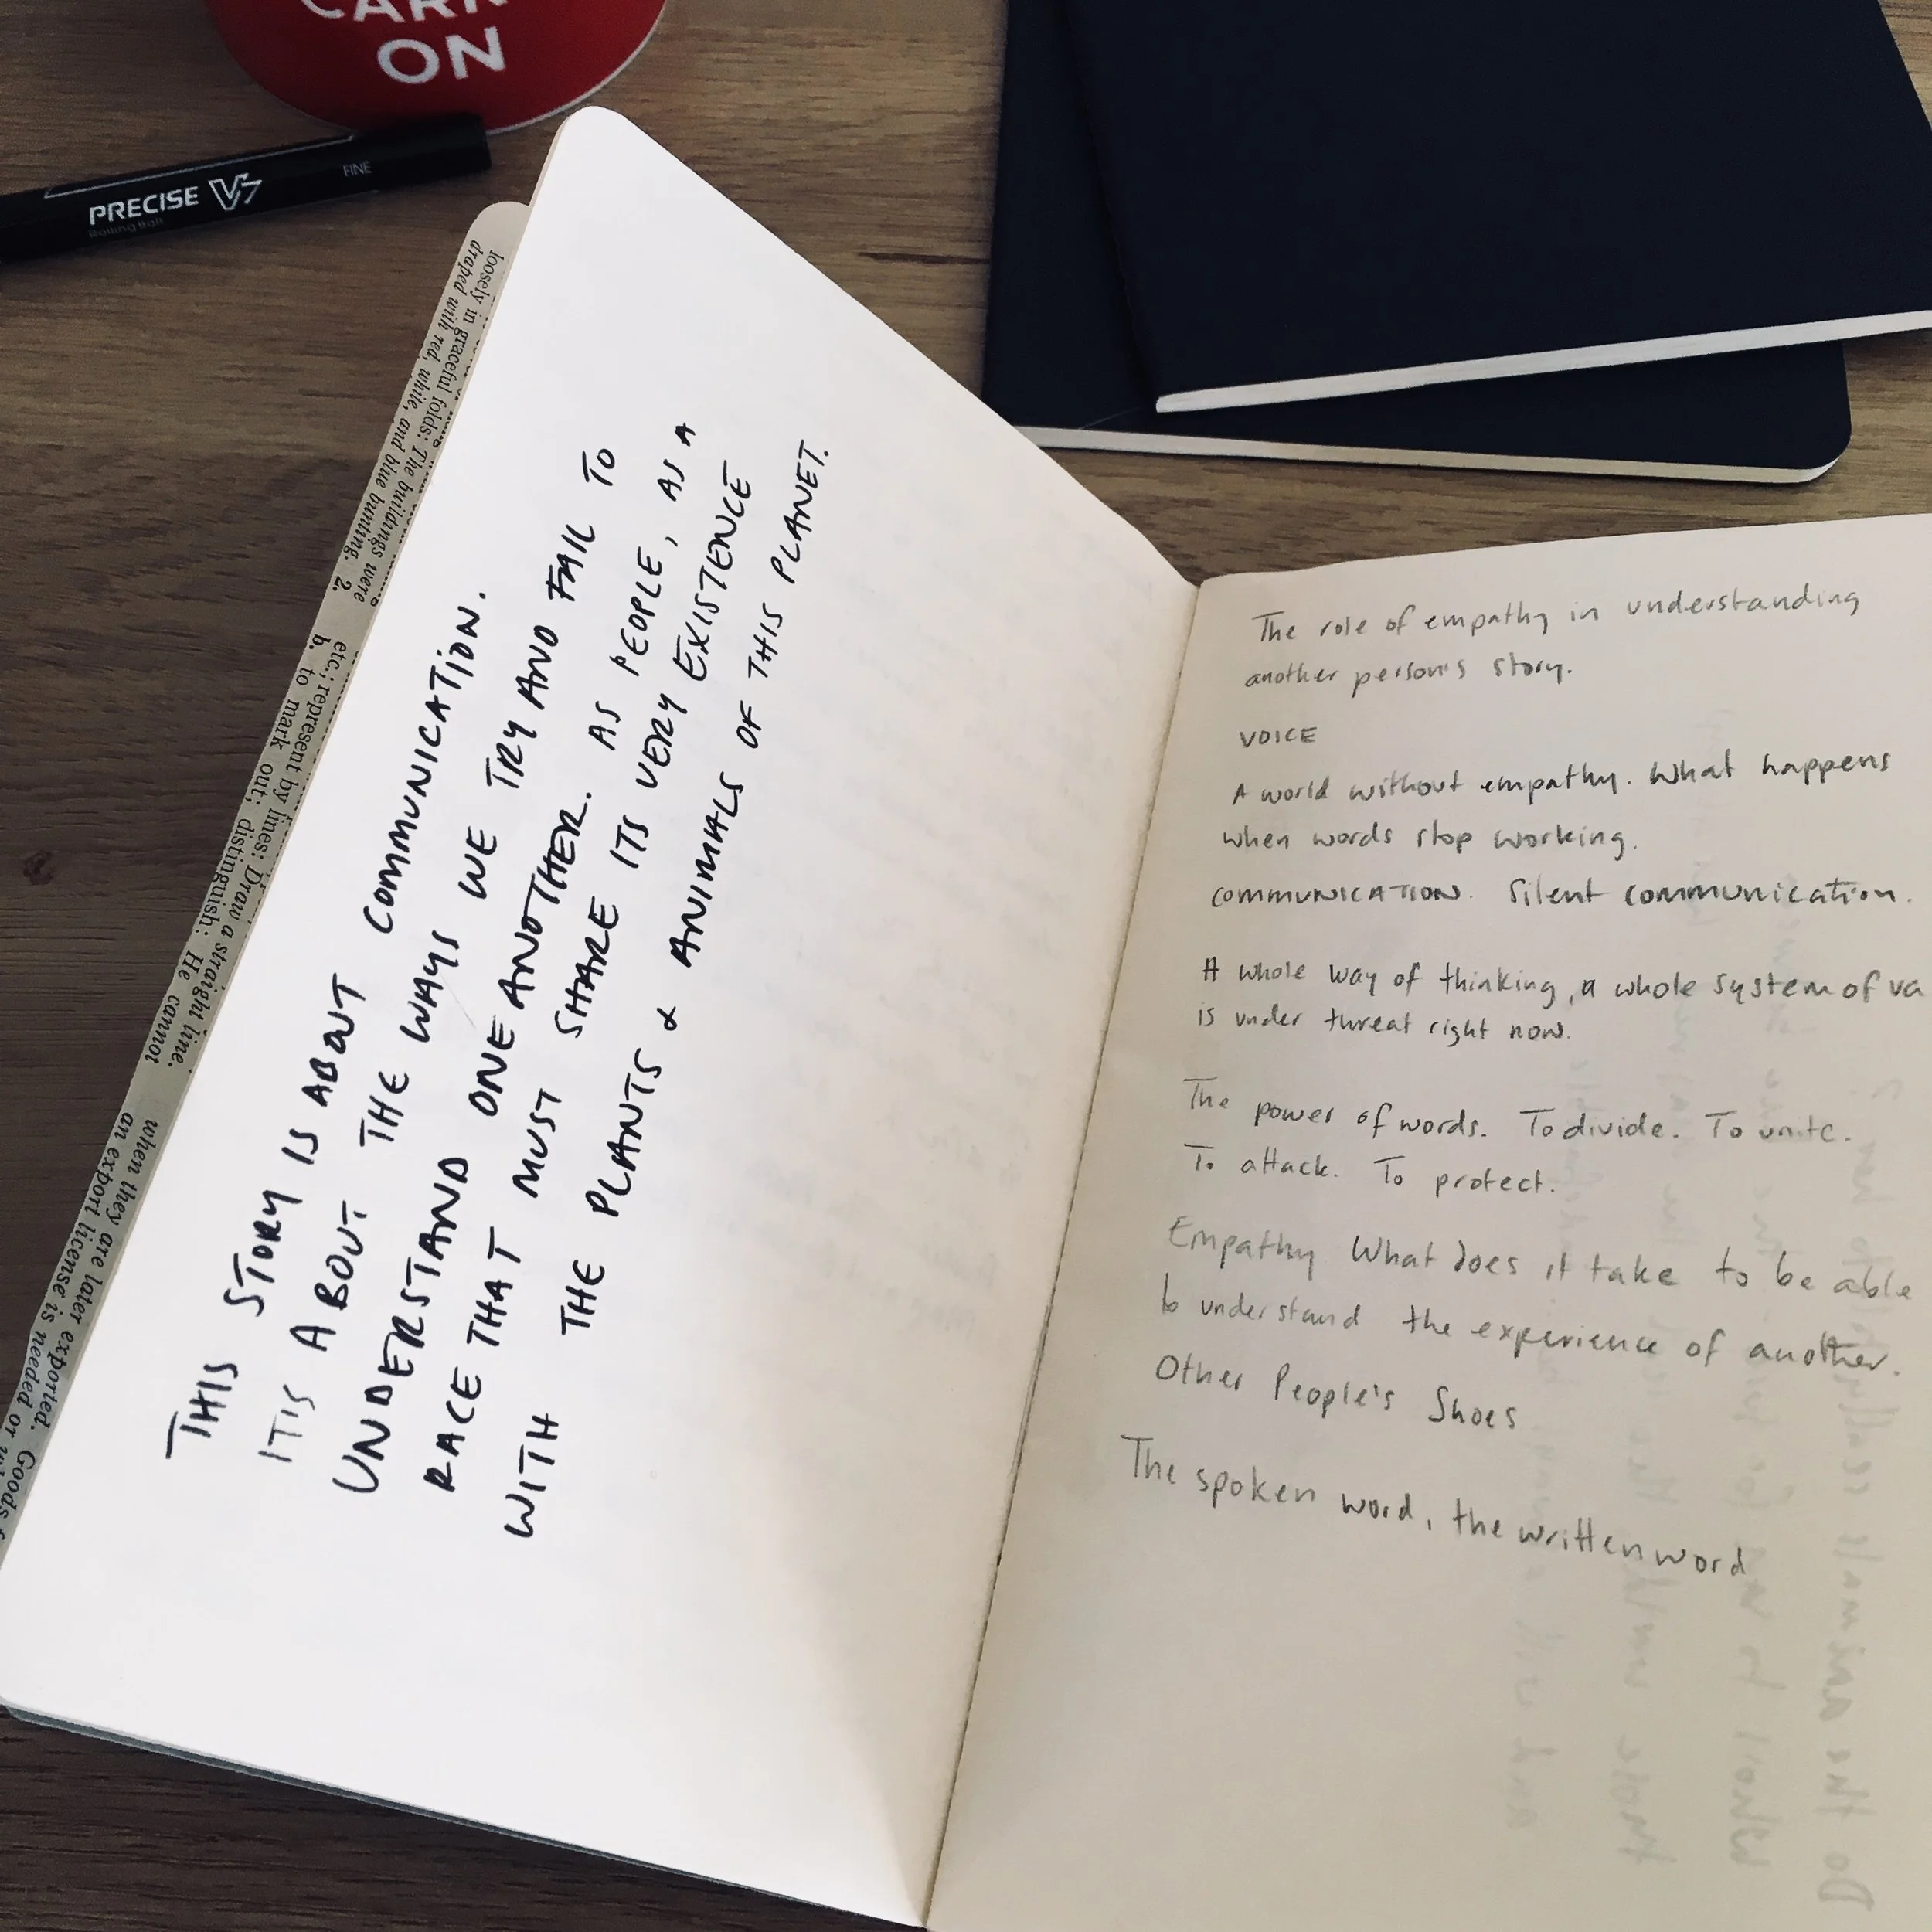 CARR
ON
PRECISE V7
FINE
Rolling Ball
loosely in graceful folds: The buildings were
draped with red, white, and blue bunting. 2.
etc.; represent by lines: Draw a straight line.
b. to mark out; distinguish: He cannot
when they are later exported. Goods
an export license is needed or
THIS STORY IS ABOUT COMMUNICATION.
IT IS ABOUT THE WAYS WE TRY AND FAIL TO
UNDERSTAND ONE ANOTHER. AS PEOPLE, AS A
RACE THAT MUST SHARE ITS VERY EXISTENCE
WITH THE PLANTS & ANIMALS OF THIS PLANET.
The role of empathy in understanding
another person's story.
VOICE
A world without empathy. What happens
when words stop working.
COMMUNICATION. Silent communication.
A whole way of thinking, a whole system of va
is under threat right now.
The power of words. To divide. To unite.
To attack. To protect.
Empathy What does it take to be able
to understand the experience of another.
Other People's Shoes
The spoken word, the written word